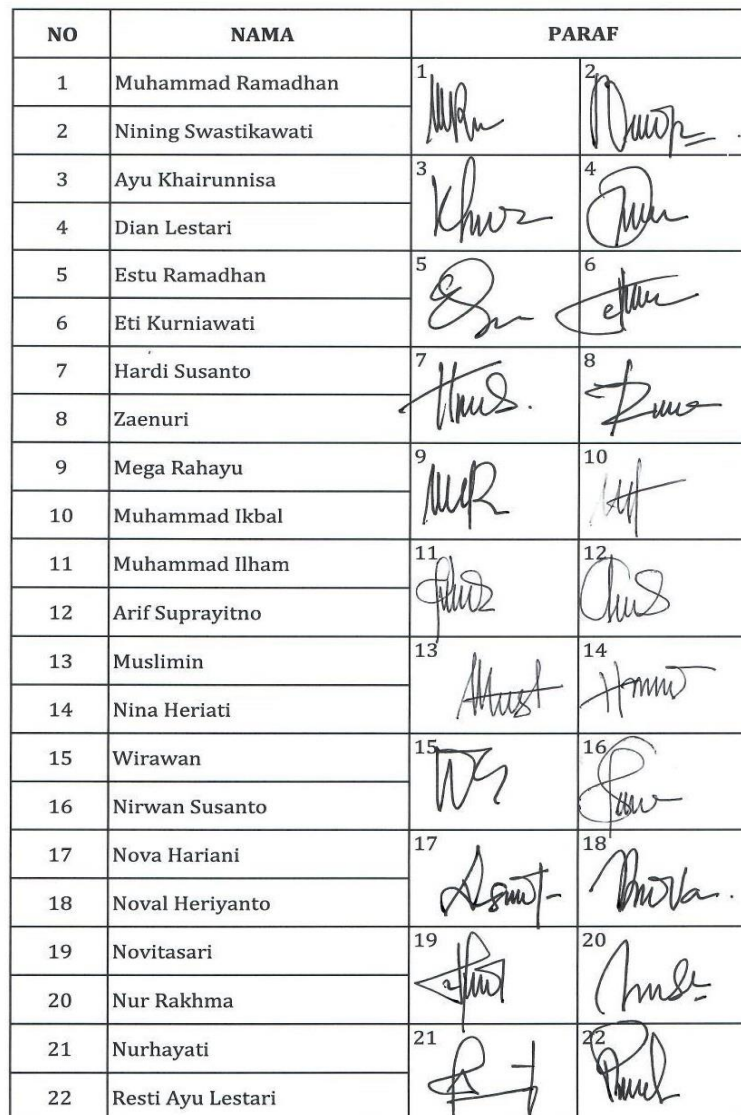 NO NAMA PARAF
1 Muhammad Ramadhan 1 2
2 Nining Swastikawati
3 Ayu Khairunnisa 3 4
4 Dian Lestari
5 Estu Ramadhan 5 6
6 Eti Kurniawati
7 Hardi Susanto 7 8
8 Zaenuri
9 Mega Rahayu 9 10
10 Muhammad Ikbal
11 Muhammad Ilham 11 12
12 Arif Suprayitno
13 Muslimin 13 14
14 Nina Heriati
15 Wirawan 15 16
16 Nirwan Susanto
17 Nova Hariani 17 18
18 Noval Heriyanto
19 Novitasari 19 20
20 Nur Rakhma
21 Nurhayati 21 22
22 Resti Ayu Lestari